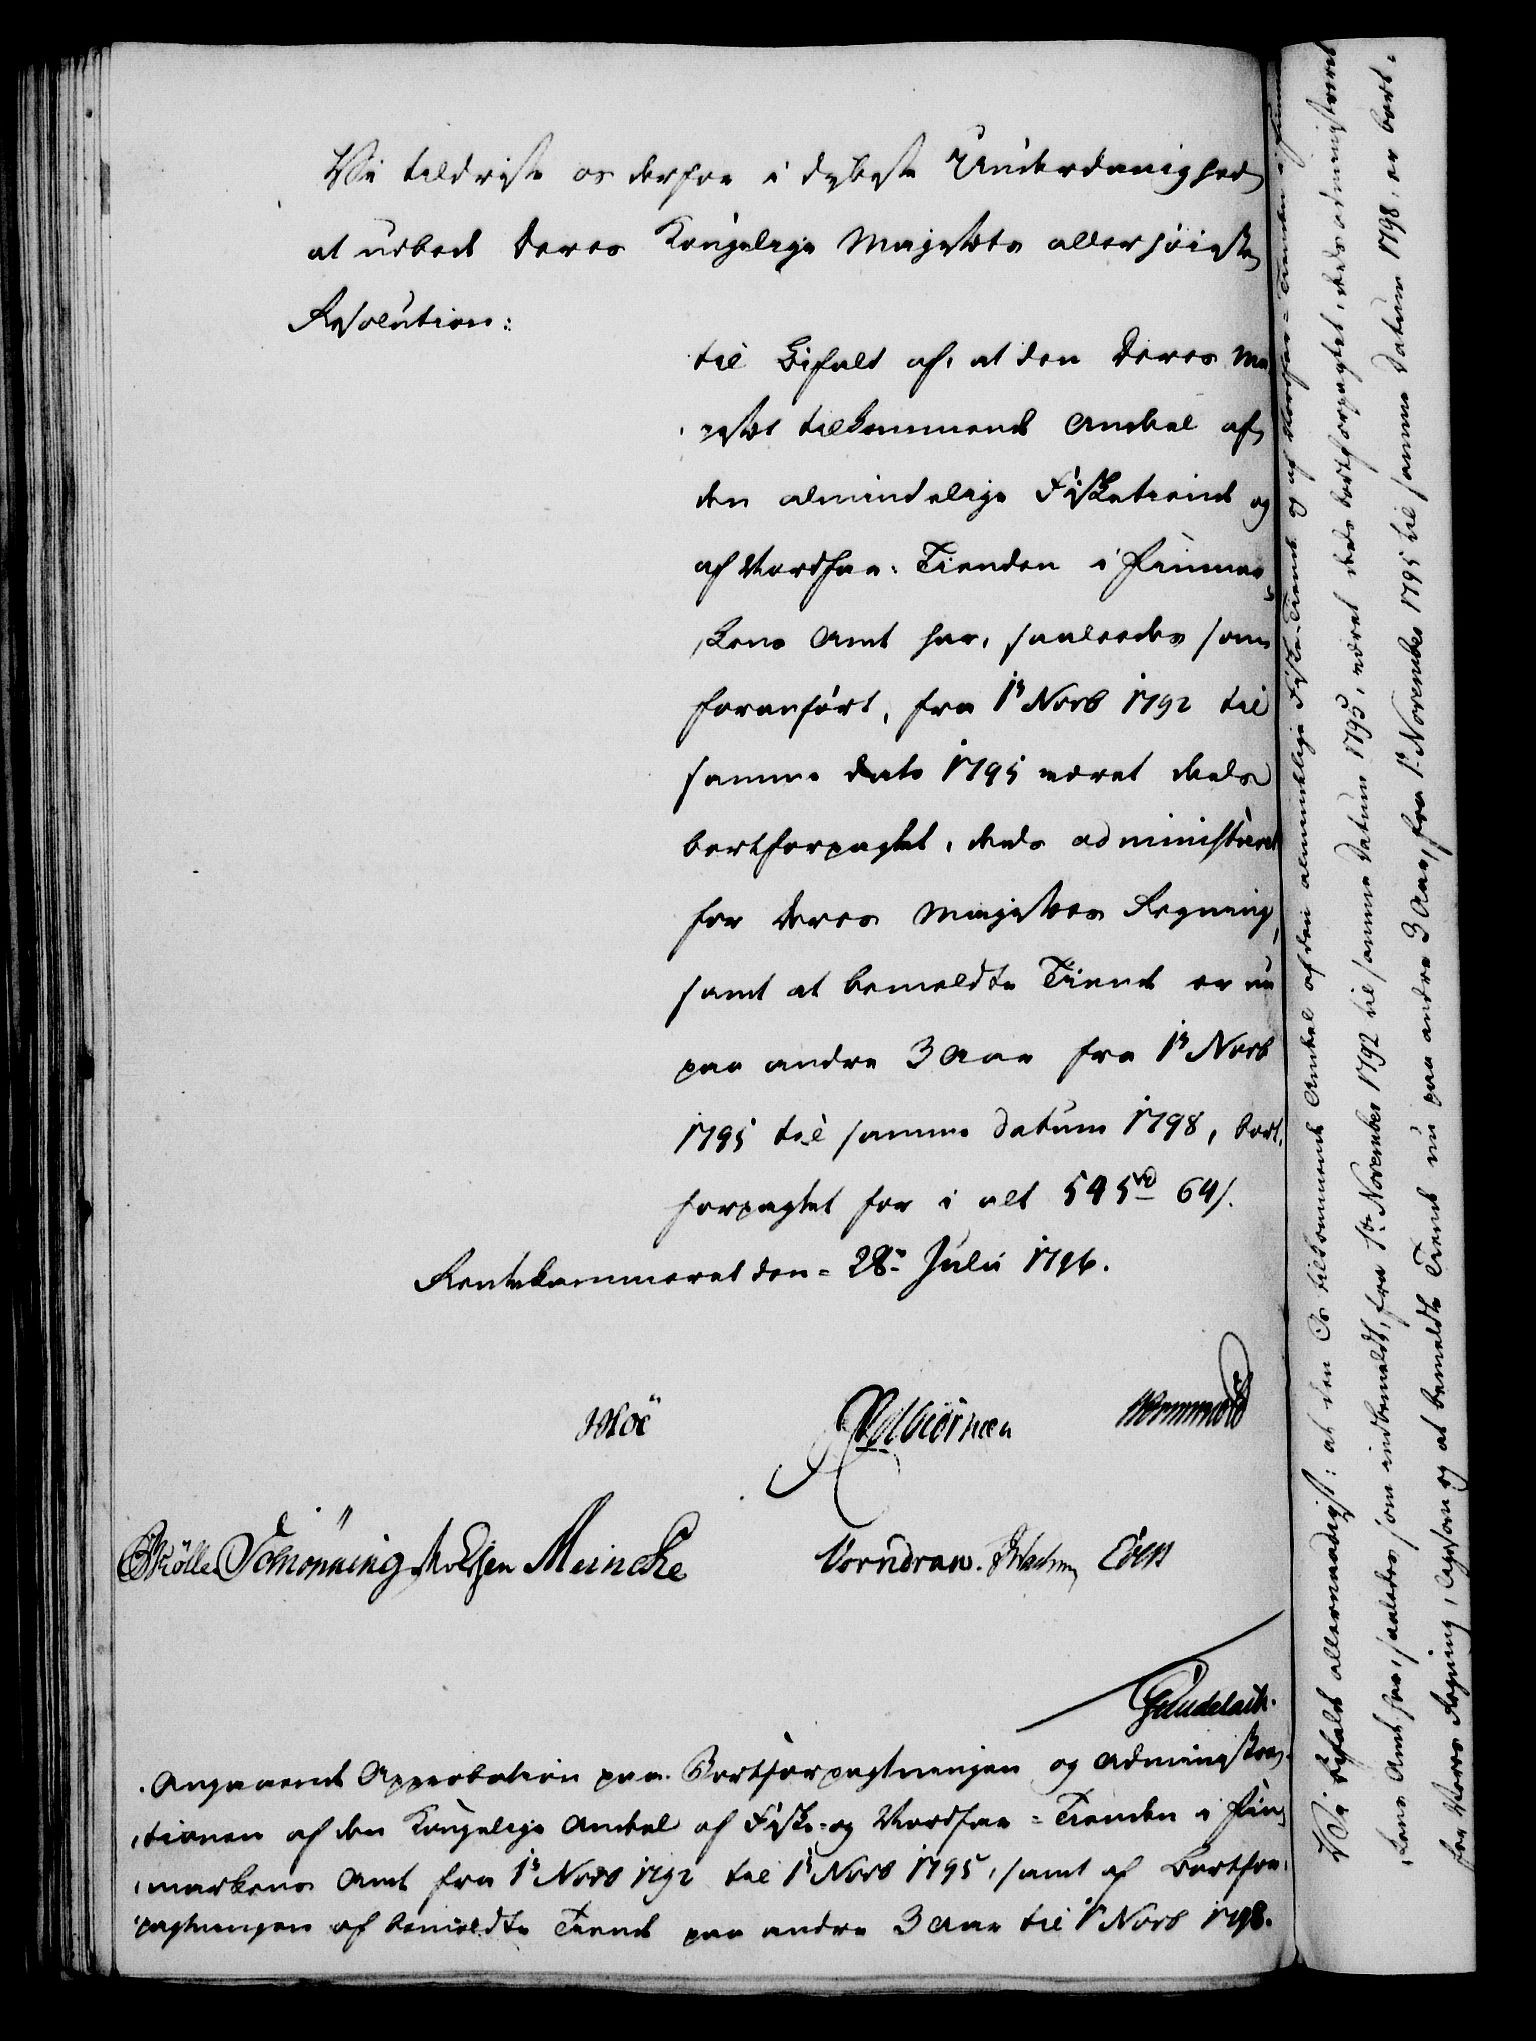 Vi tildriste os derfor i dybeste Underdanighed
at udbede Deres Kongelige Majestets allerhøieste
Resolution:
til Bifald af, at den Deres Ma-
jestet tilkommende Andeel af
den almindelige Fisketiende og
af Vardøe-Tienden i Finmar-
kens Amt har, saaledes som
foranført, fra 1te Novb 1792 til
samme Dato 1795 været deels
bortforpagtet, deels administreret
for Deres Majestets Regning,
samt at bemeldte Tiende er nu
paa andre 3 Aar fra 1te Novb
1795 til samme Datum 1798, bort-
forpagtet for i alt 545 rd 64 s.
Rentekammeret den 28de Julii 1796.
Moe
Wormwold
Møller Schiønning Meincke
Vorndran.
Gündelach.
Angaaende Approbation paa Bortforpagtningen og Administra-
tionen af den Kongelige Andeel af Fiske- og Tienden i Fin-
markens Amt fra 1te Novb 1792 til 1te Novb 1795, samt af Bortfor-
pagtningen af bemeldte Tiende paa andre 3 Aar til 1te Novb 1798.
Vi bifalde allernaadigst: at den Os tilkommende Andeel af den almindelige Fiske-Tiende og af Tienden i Finmar-
kens Amt har, saaledes som indbemeldt, fra 1te November 1792 til samme Datum 1795, været deels bortforpagtet, deels administreret
for Vores Regning, ligesom og at bemeldte Tiende nu paa andre 3 Aar, fra 1te November 1795 til samme Datum 1798, er bort-